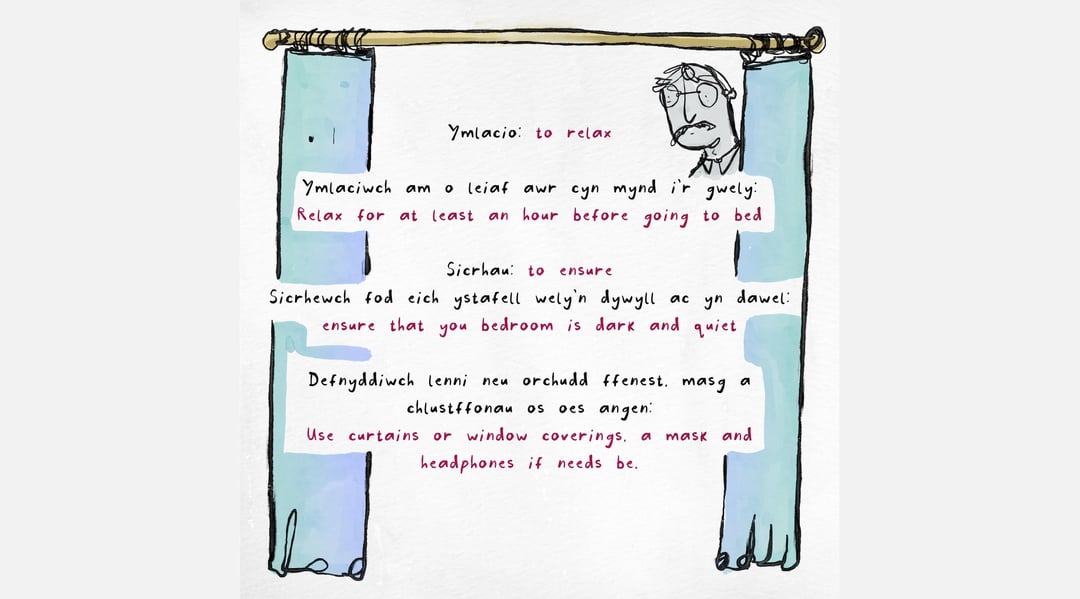 Ymlacio: to relax
Ymlaciwch am o leiaf awr cyn mynd i'r gwely:
Relax for at least an hour before going to bed
Sicrhau: to ensure
Sicrhewch fod eich ystafell wely'n dywyll ac yn dawel:
ensure that you bedroom is dark and quiet
Defnyddiwch lenni neu orchudd ffenest, masg a
chlustffonau os oes angen:
Use curtains or window coverings, a mask and
headphones if needs be.